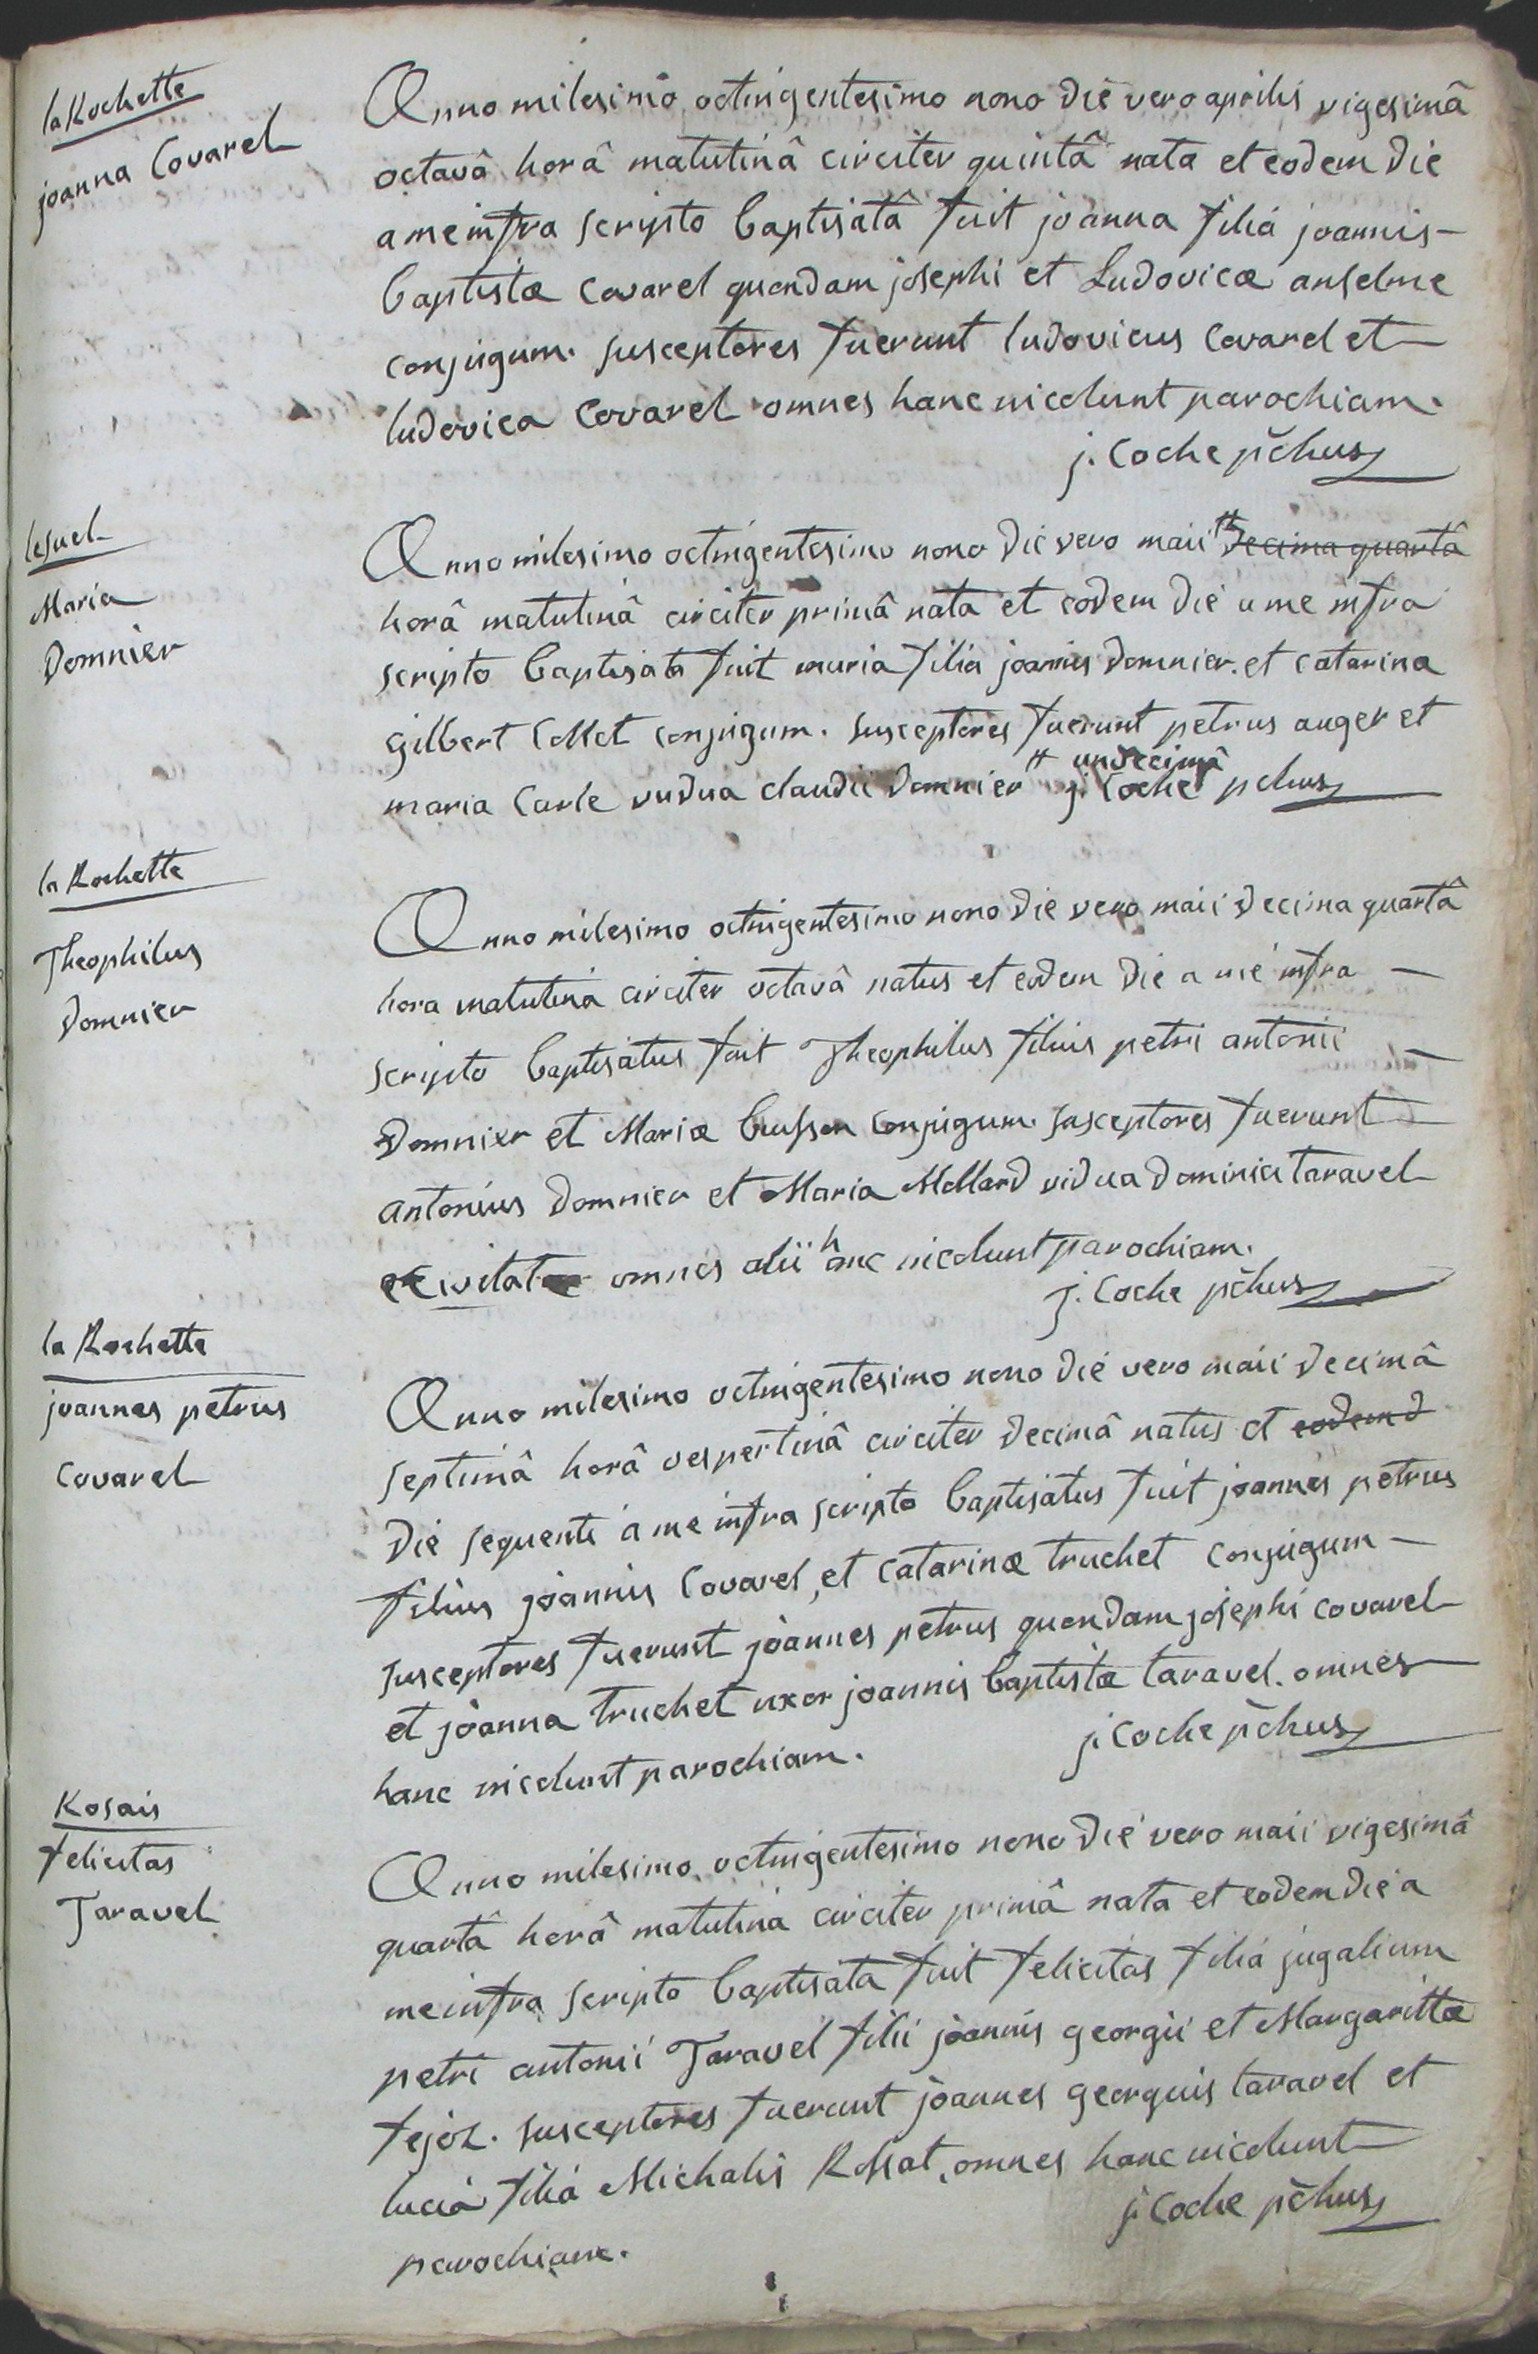 la Rochette
joanna Covarel
Anno milesimo octingentesimo nono die vero aprilis vigesimâ
octavâ horâ matutinâ circiter quintâ nata et eodem die
a me infra scripto baptisata fuit joanna filia joannis
baptistæ Covarel quondam josephi et Ludovicæ anselme
conjugum. susceptores fuerunt ludovicus Covarel et
ludovica Covarel omnes hanc incolunt parochiam.
j. Coche pchus
lesuel
Maria
Domnier
Anno milesimo octingentesimo nono die vero maii # decima quartâ
horâ matutinâ circiter primâ nata et eodem die a me infra
scripto baptisata fuit maria filia joannis Domnier et catarina
Gilbert Collet conjugum. susceptores fuerunt petrus auger et
maria Carle vudua claudii Domnier # undecimâ
j. Coche pchus
la Rochette
Theophilus
Domnier
Anno milesimo octingentesimo nono die vero maii decima quartâ
hora matutina circiter octavâ natus et eodem die a me infra
scripto baptisatus fuit Theophilus filius petri antonii
Domnier et Mariæ conjugum. susceptores fuerunt
antonius Domnier et Maria Mollard vidua dominici taravel
omnes alii hanc incolunt parochiam.
j. Coche pchus
la Rochette
joannes petrus
covarel
Anno milesimo octingentesimo nono die vero maii decimâ
septimâ horâ vespertinâ circiter decimâ natus et eodem d
die sequenti a me infra scripto baptisatus fuit joannes petrus
filius joannis Covarel, et catarinæ truchet conjugum
susceptores fuerunt joannes petrus quondam josephi covarel
et joanna truchet uxor joannis baptistæ taravel. omnes
hanc incolunt parochiam.
j. Coche pchus
Rosais
felicitas
Taravel
Anno milesimo octingentesimo nono die vero maii vigesimâ
quartâ horâ matutina circiter primâ nata et eodem die a
me infra scripto baptisata fuit felicitas filia jugalium
petri antonii Taravel filii joannis georgii et Margarittæ
fejoz. susceptores fuerunt joannes georguis taravel et
lucia filia Michalis Rossat, omnes hanc incolunt
parochiam.
j. Coche pchus